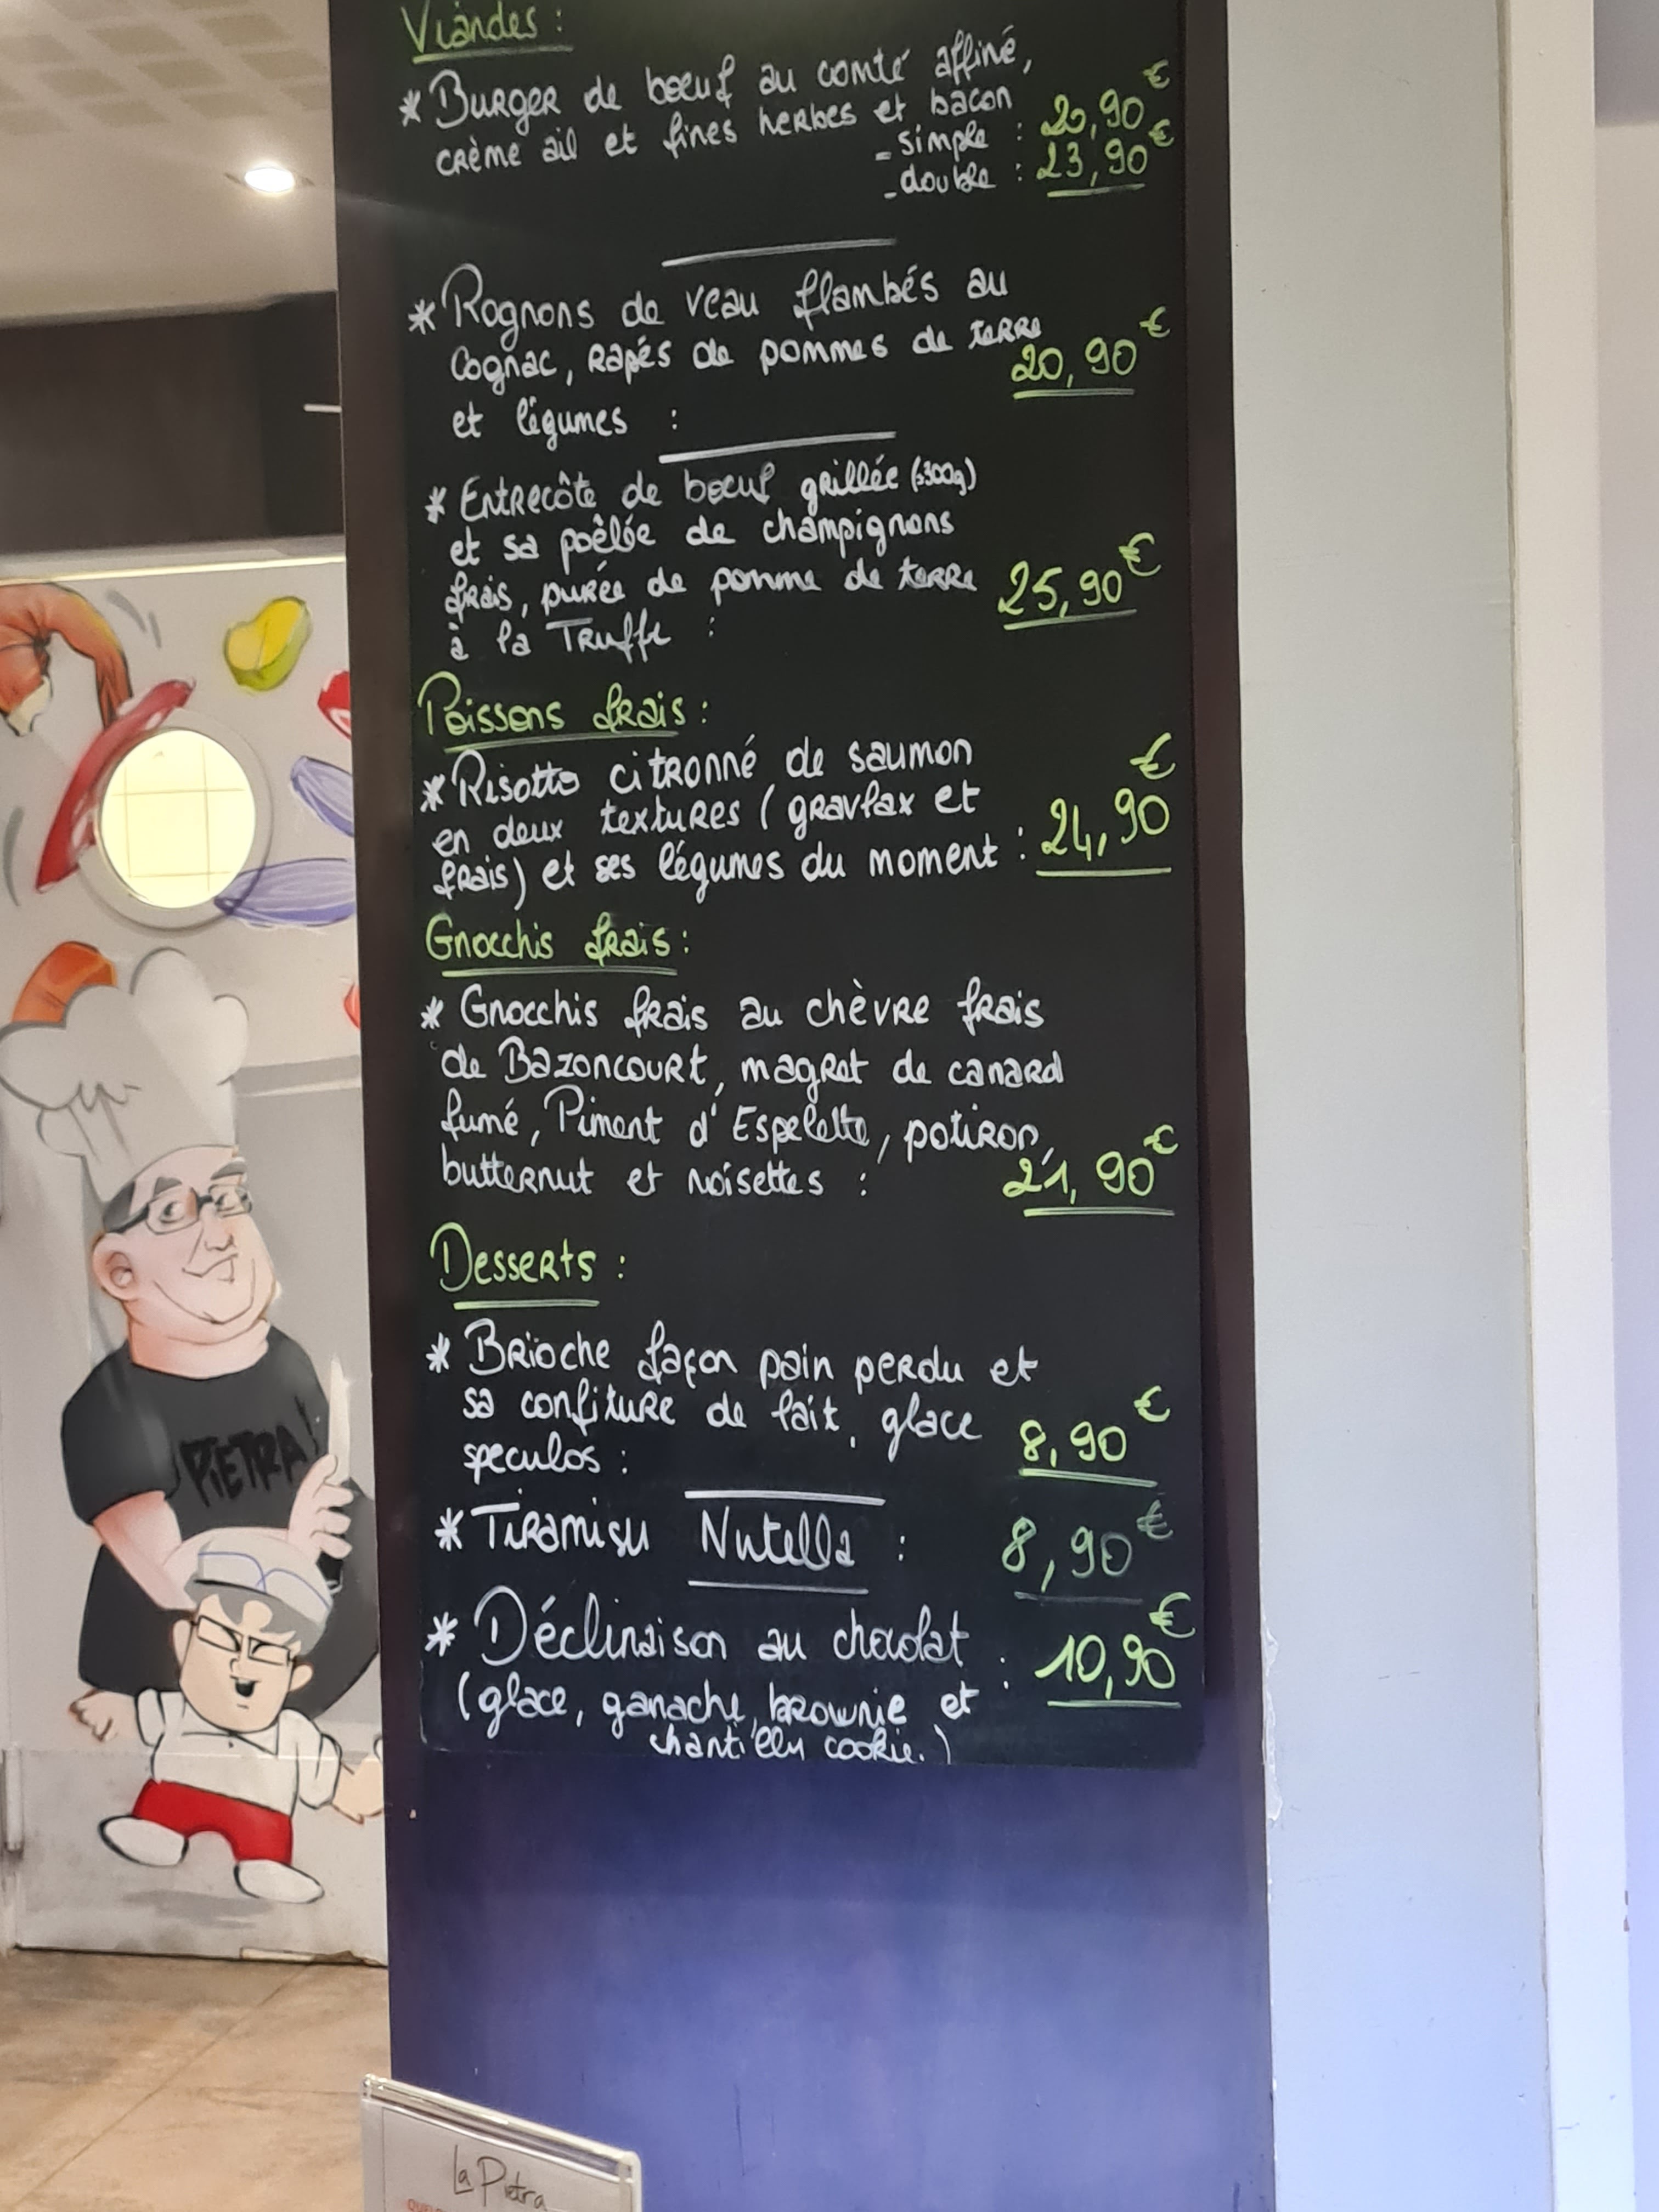 Viandes :
* Burger de boeuf au comté affiné,
crème ail et fines herbes et bacon
- simple : 20,90 €
- double : 23,90 €
* Rognons de veau flambés au
Cognac, Rapés de pommes de terre
et légumes : 20,90 €
* Entrecôte de boeuf grillée (±300g)
et sa poêlée de champignons
frais, purée de pomme de terre
à la Truffe : 25,90 €
Poissons frais :
* Risotto citronné de saumon
en deux textures (gravlax et
frais) et ses légumes du moment : 24,90 €
Gnocchis frais :
* Gnocchis frais au chèvre frais
de Bazoncourt, magret de canard
fumé, Piment d'Espelette, potiron,
butternut et noisettes : 21,90 €
Desserts :
* Brioche façon pain perdu et
sa confiture de lait, glace
speculos : 8,90 €
* Tiramisu Nutella : 8,90 €
* Déclinaison au chocolat : 10,90 €
(glace, ganache, brownie et
chantilly cookie.)
PIETRA
La Pietra